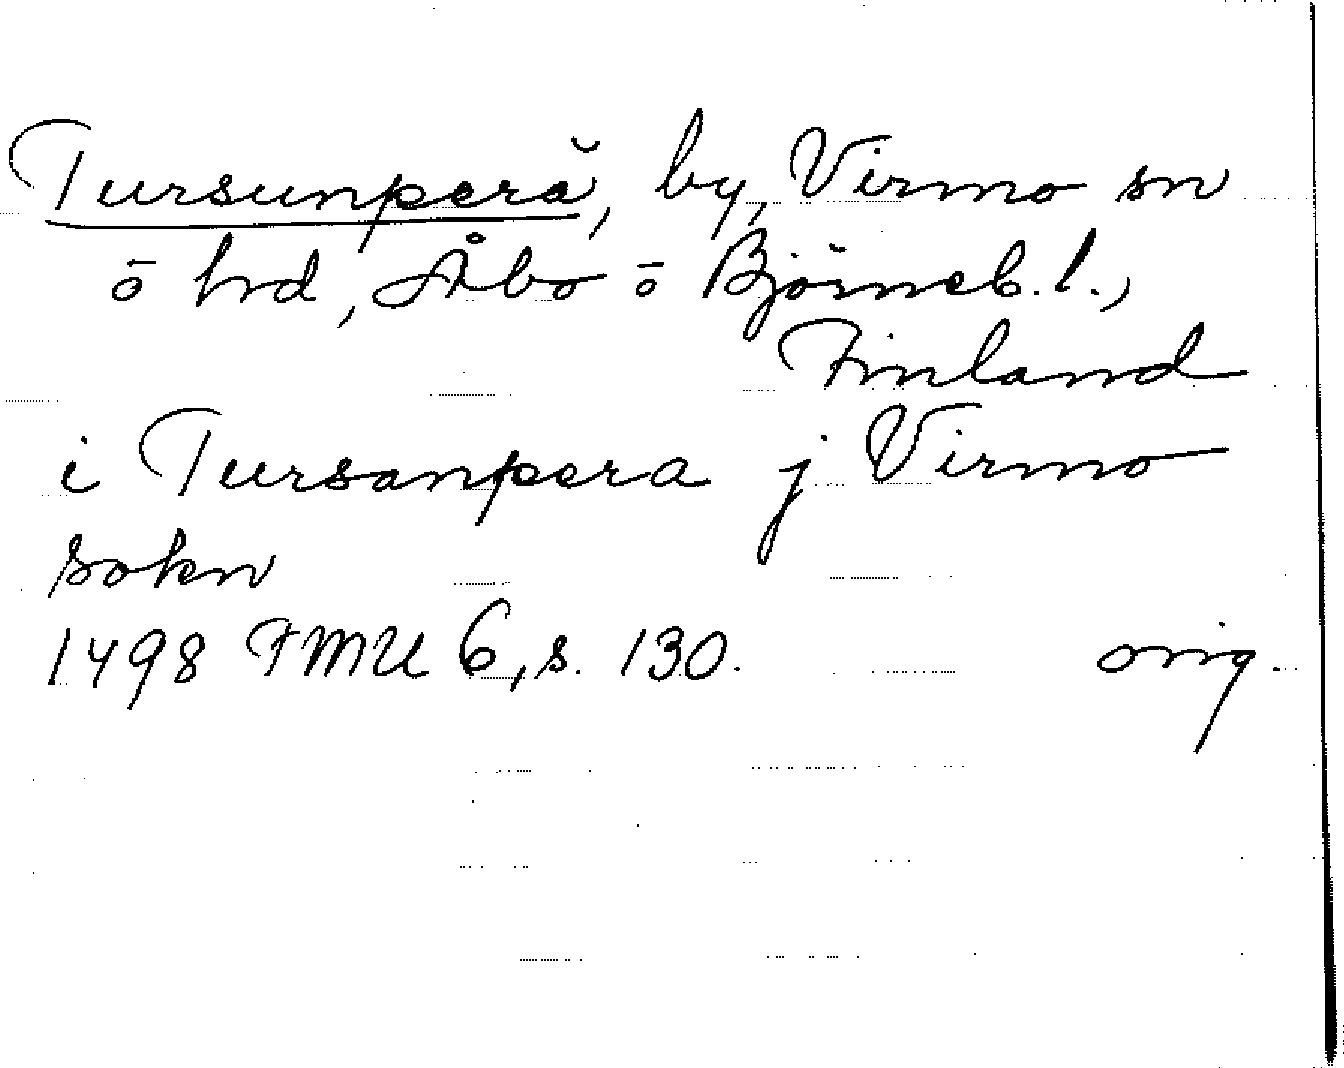 Tursunperä, by, Virmo sn
o hd, Åbo o Björneb. l.,
Finland
i Tursanpera j Virmo
sokn
1498 FMU 6, s. 130. orig.